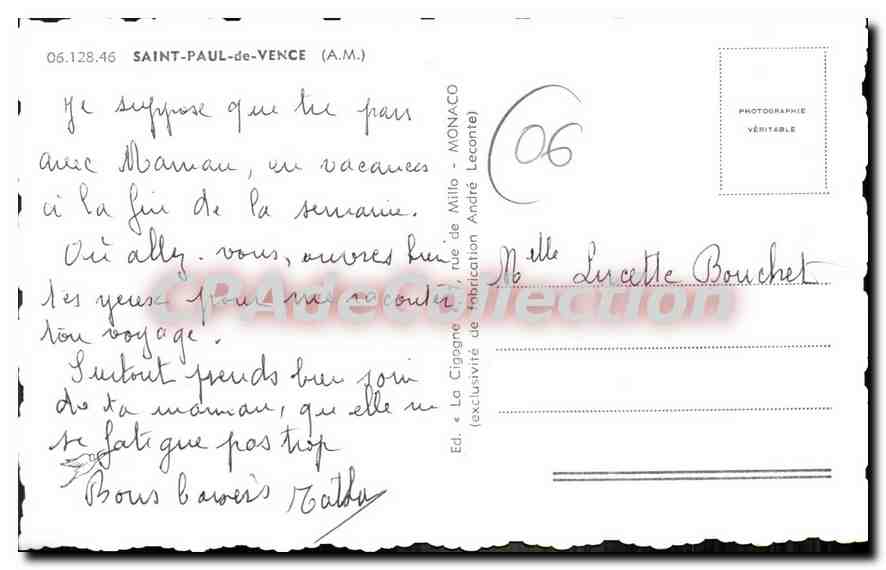 06.128.46 SAINT-PAUL-de-VENCE (A.M.)
Je suppose que tu pars
avec Maman, en vacances
à la fin de la semaine.
Où allez-vous, ouvres bien
tes yeux pour me raconter
ton voyage.
Surtout prends bien soin
de ta maman, que elle ne
se fatigue pas trop
Bons baisers
Ed. « La Cigogne rue de Millo - MONACO
(exclusivité de fabrication André Leconte)
06
PHOTOGRAPHIE
VÉRITABLE
Melle Lucette Bouchet
CPAdeCollection